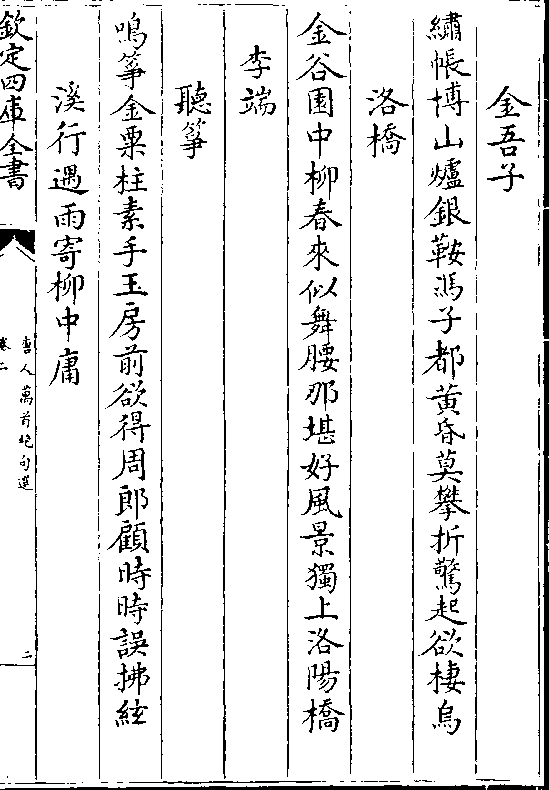 金吾子
繡帳博山爐銀鞍馮子都黃昏莫攀折驚起欲棲烏
洛橋
金谷園中柳春來似舞腰那堪好風景獨上洛陽橋
李端
聽箏
鳴箏金粟柱素手玉房前欲得周郎顧時時誤拂絃
溪行遇雨寄柳中庸
欽定四庫全書
唐人萬首絶句選
卷二
二